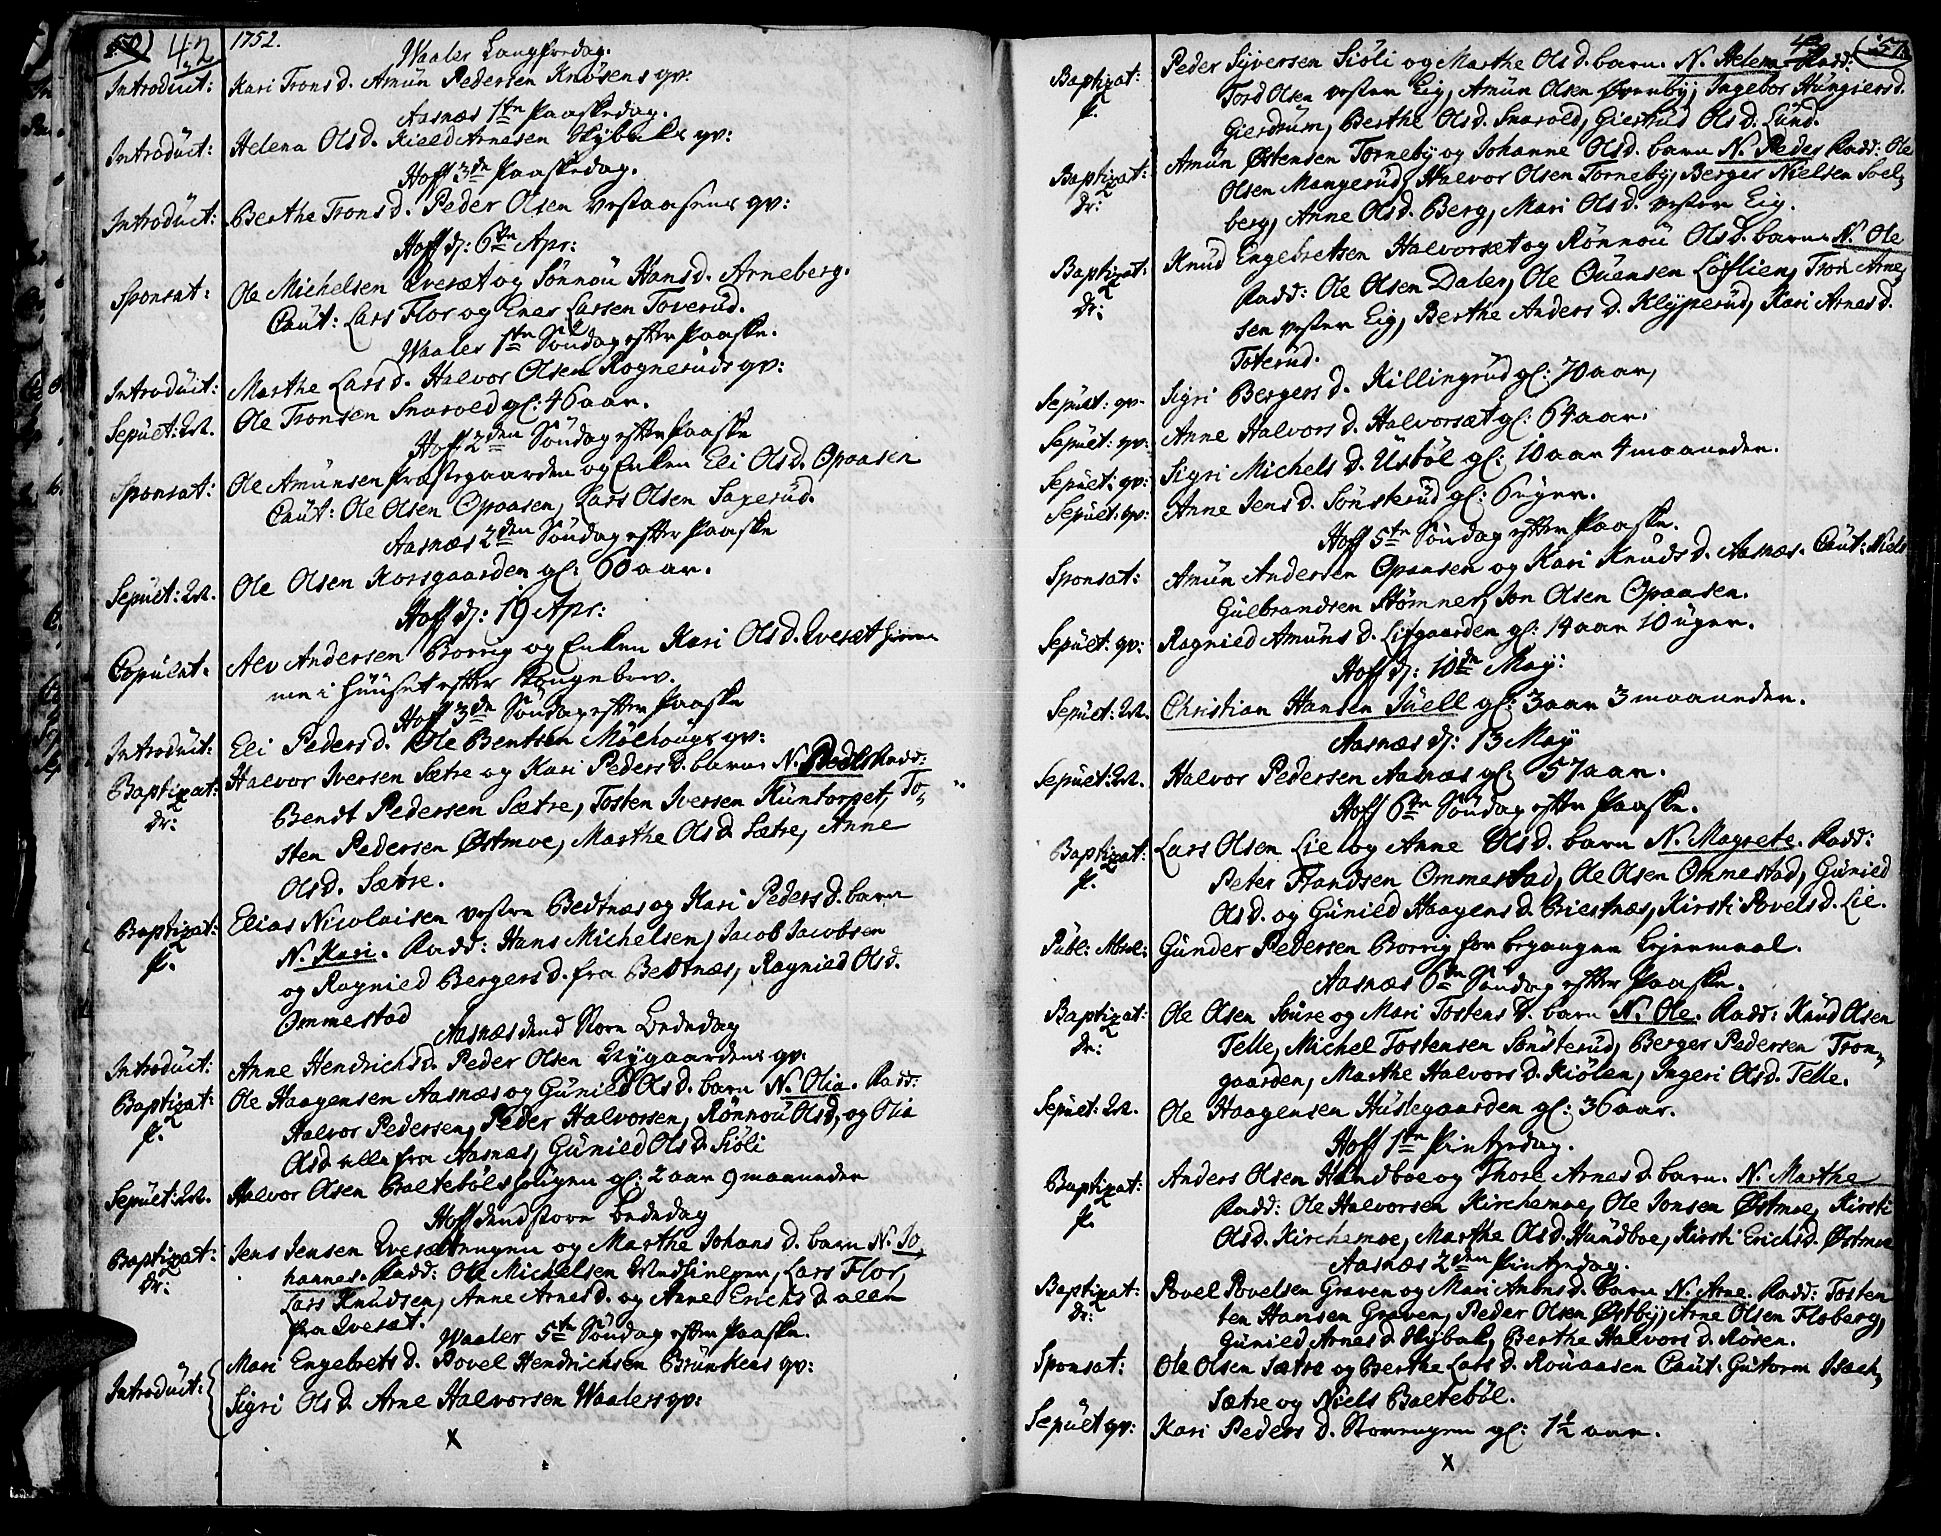 42
1752.
Waaler Langfredag.
Introduct: Kari Trons d. Amün Pedersen Knösens qv:
Aasnæs 1ste Paaskedag.
Introduct: Helena Ols d. Kield Arnesen Hÿbaks qv:
Hoff 3die Paaskedag.
Introduct: Berthe Trons d. Peder Olsen vestaasens qv:
Hoff d: 6te Apr:
Sponsat: Ole Michelsen Qvesæt og Sönnoü Hans d. Arneberg.
Caut: Lars Flor og Ener Larsen Toverüd.
Waaler 1ste Söndag efter Paaske.
Introduct: Marthe Lars d. Halvor Olsen Rogneruds qv:
Sepult: M. Ole Tronsen Snarold gl: 46 aar.
Hoff 2den Söndag efter Paaske
Sponsat: Ole Amünsen Præstegaarden og Enken Eli Ols d. Opaasen
Caut: Ole Olsen Opaasen, Lars Olsen Sagerüd.
Aasnæs 2den Söndag efter Paaske
Sepult: M. Ole Olsen Korsgaarden gl: 60 aar.
Hoff d: 19 Apr:
Copulat: Alv Andersen Borrig og Enken Kari Ols d. Qvesæt hiem
me i Hüüset efter Kongebrev.
Hoff 3die Söndag efter Paaske
Introduct: Eli Peders d. Ole Bentsen Mölhougs qv:
Baptizat: dr: Halvor Iversen Sætre og Kari Peders d. barn N. Fadd:
Bendt Pedersen Sætre, Tosten Iversen Küntorpet, To,,
sten Pedersen Østmoe, Marthe Ols d. Sætre, Anne
Ols d. Sætre.
Baptizat: p. Elias Nicolaisen vestre Bedtnæs og Kari Peders d. barn
N. Kari. Fadd: Hans Michelsen, Jacob Jacobsen
og Ragnied Bergers d. fra Bedtnæs, Ragnied Ols d.
Ommestad
Aasnæs dend Store Bededag
Introduct: Anne Hendrichs d. Peder Olsen Nygaardens qv:
Baptizat: p. Ole Haagensen Aasnæs og Günied Ols d. barn N. Olia. Fadd:
Halvor Pedersen, Peder Halvorsen, Rönnoü Ols d, og Olia
Ols d. alle fra Aasnæs, Günied Ols d. Siöli
Sepult: M. Halvor Olsen Baltebölshougen gl: 2 aar 9 maaneder
Hoff dend store Bededag
Baptizat: dr: Jens Jensen Qvesætengen og Marthe Johans d. barn N. Jo
hannes. Fadd: Ole Michelsen, Lars Flor,
Lars Knudsen, Anne Arnes d. og Anne Erichs d alle
fra Qvesæt.
Waaler 5te Söndag efter Paaske.
Introduct: Mari Engebrets d. Povel Hendrichsen Brünkens qv:
Sigri Ols d. Arne Halvorsen Waalers qv:
X
Baptizat: p. Peder Syversen Siöli og Marthe Ols d. barn. N. Helena Fadd:
Tord Olsen vestre Eig, Amün Olsen Øvenby, Ingebor Hüngiers d.
Gierdrum, Berthe Ols d. Snarold, Giertrüd Ols d. Lünd.
Baptizat: dr: Amün Østensen Torneby og Johanne Ols d. barn N. Peder Fadd: Ole
Olsen Mangerud, Halvor Olsen Torneby, Berger Nielsen Soel,,
berg, Anne Ols d. Berg, Mari Ols d. vestre Eig.
Baptizat: dr: Knud Engebretsen Halvorsæt og Rönnoü Ols d. barn. N. Ole
Fadd: Ole Olsen Daler, Ole Ouensen Löflien, Tron Arne,,
sen vestre Eig, Berthe Anders d. Klyperüd, Kari Arnes d.
Toterüd.
Sepult: qv. Sigri Bergers d. Killingrud gl: 70 aar,
Sepult: qv: Anne Halvors d. Halvorsæt gl: 64 aar.
Sepult: qv: Sigri Michels d. Üsböl gl: 10 aar 4 maaneder.
Sepult: qv: Anne Jens d. Sönsterüd gl: 6 uger.
Hoff 5te Söndag efter Paaske.
Sponsat: Amün Andersen Opaasen og Kari Knuds d. Aasnæs. Caut: Niels
Gulbrandsen Stömner, Jon Olsen Opaasen.
Sepult: qv: Ragnied Amüns d. Lifgaarden gl: 14 aar 10 uger.
Hoff d: 10de May:
Sepult: M. Christian Hansen Juell gl: 3 aar 3 maaneder.
Aasnæs d: 13 May
Sepult: M. Halvor Pedersen Aasnæs gl: 57 aar.
Hoff 6te Söndag efter Paaske.
Baptizat: p. Lars Olsen Lie og Anne Ols d. barn N. Magrete. Fadd:
Peter Frandsen Ommestad, Ole Olsen Ommestad, Günied
Ols d. og Günied Haagens d. Briestnæs, Kirsti Povels d. Lie.
Publ: Absol: Gunder Pedersen Borrig for begangen Leiermaal.
Aasnæs 6te Söndag efter Paaske.
Baptizat: dr: Ole Olsen Soure og Mari Tostens d. barn N. Ole. Fadd: Knud Olsen
Telle, Michel Tostensen Sönsterud, Berger Pedersen Tron,,
gaarden, Marthe Halvors d. Kiölen, Ingeri Ols d. Telle.
Sepult: M. Ole Haagensen Huslegaarden gl: 36 aar.
Hoff 1ste Pintzedag.
Baptizat: p. Anders Olsen Hündboe og Thore Arnes d. barn. N. Marthe
Fadd: Ole Halvorsen Kirchemoe, Ole Jonsen Østmoe, Kirsti
Ols d. Kirchemoe, Marthe Ols d. Hündboe, Kirsti Erichs d. Østmoe
Aasnæs 2den Pintzedag.
Baptizat: dr: Povel Povelsen Graven og Mari Amüns d. barn N. Arne. Fadd: Tosten
ten Hansen Graven, Peder Olsen Østby, Arne Olsen Floberg,
Günied Arnes d. Hybak, Berthe Halvors d. Rosen.
Sponsat: Ole Olsen Sætre og Berthe Lars d. Rouaasen Caut: Gutorm Isach,,
Sætre og Niels Balteböl.
Sepult qv: Kari Peders d. Storengen gl: 1½ aar.
X